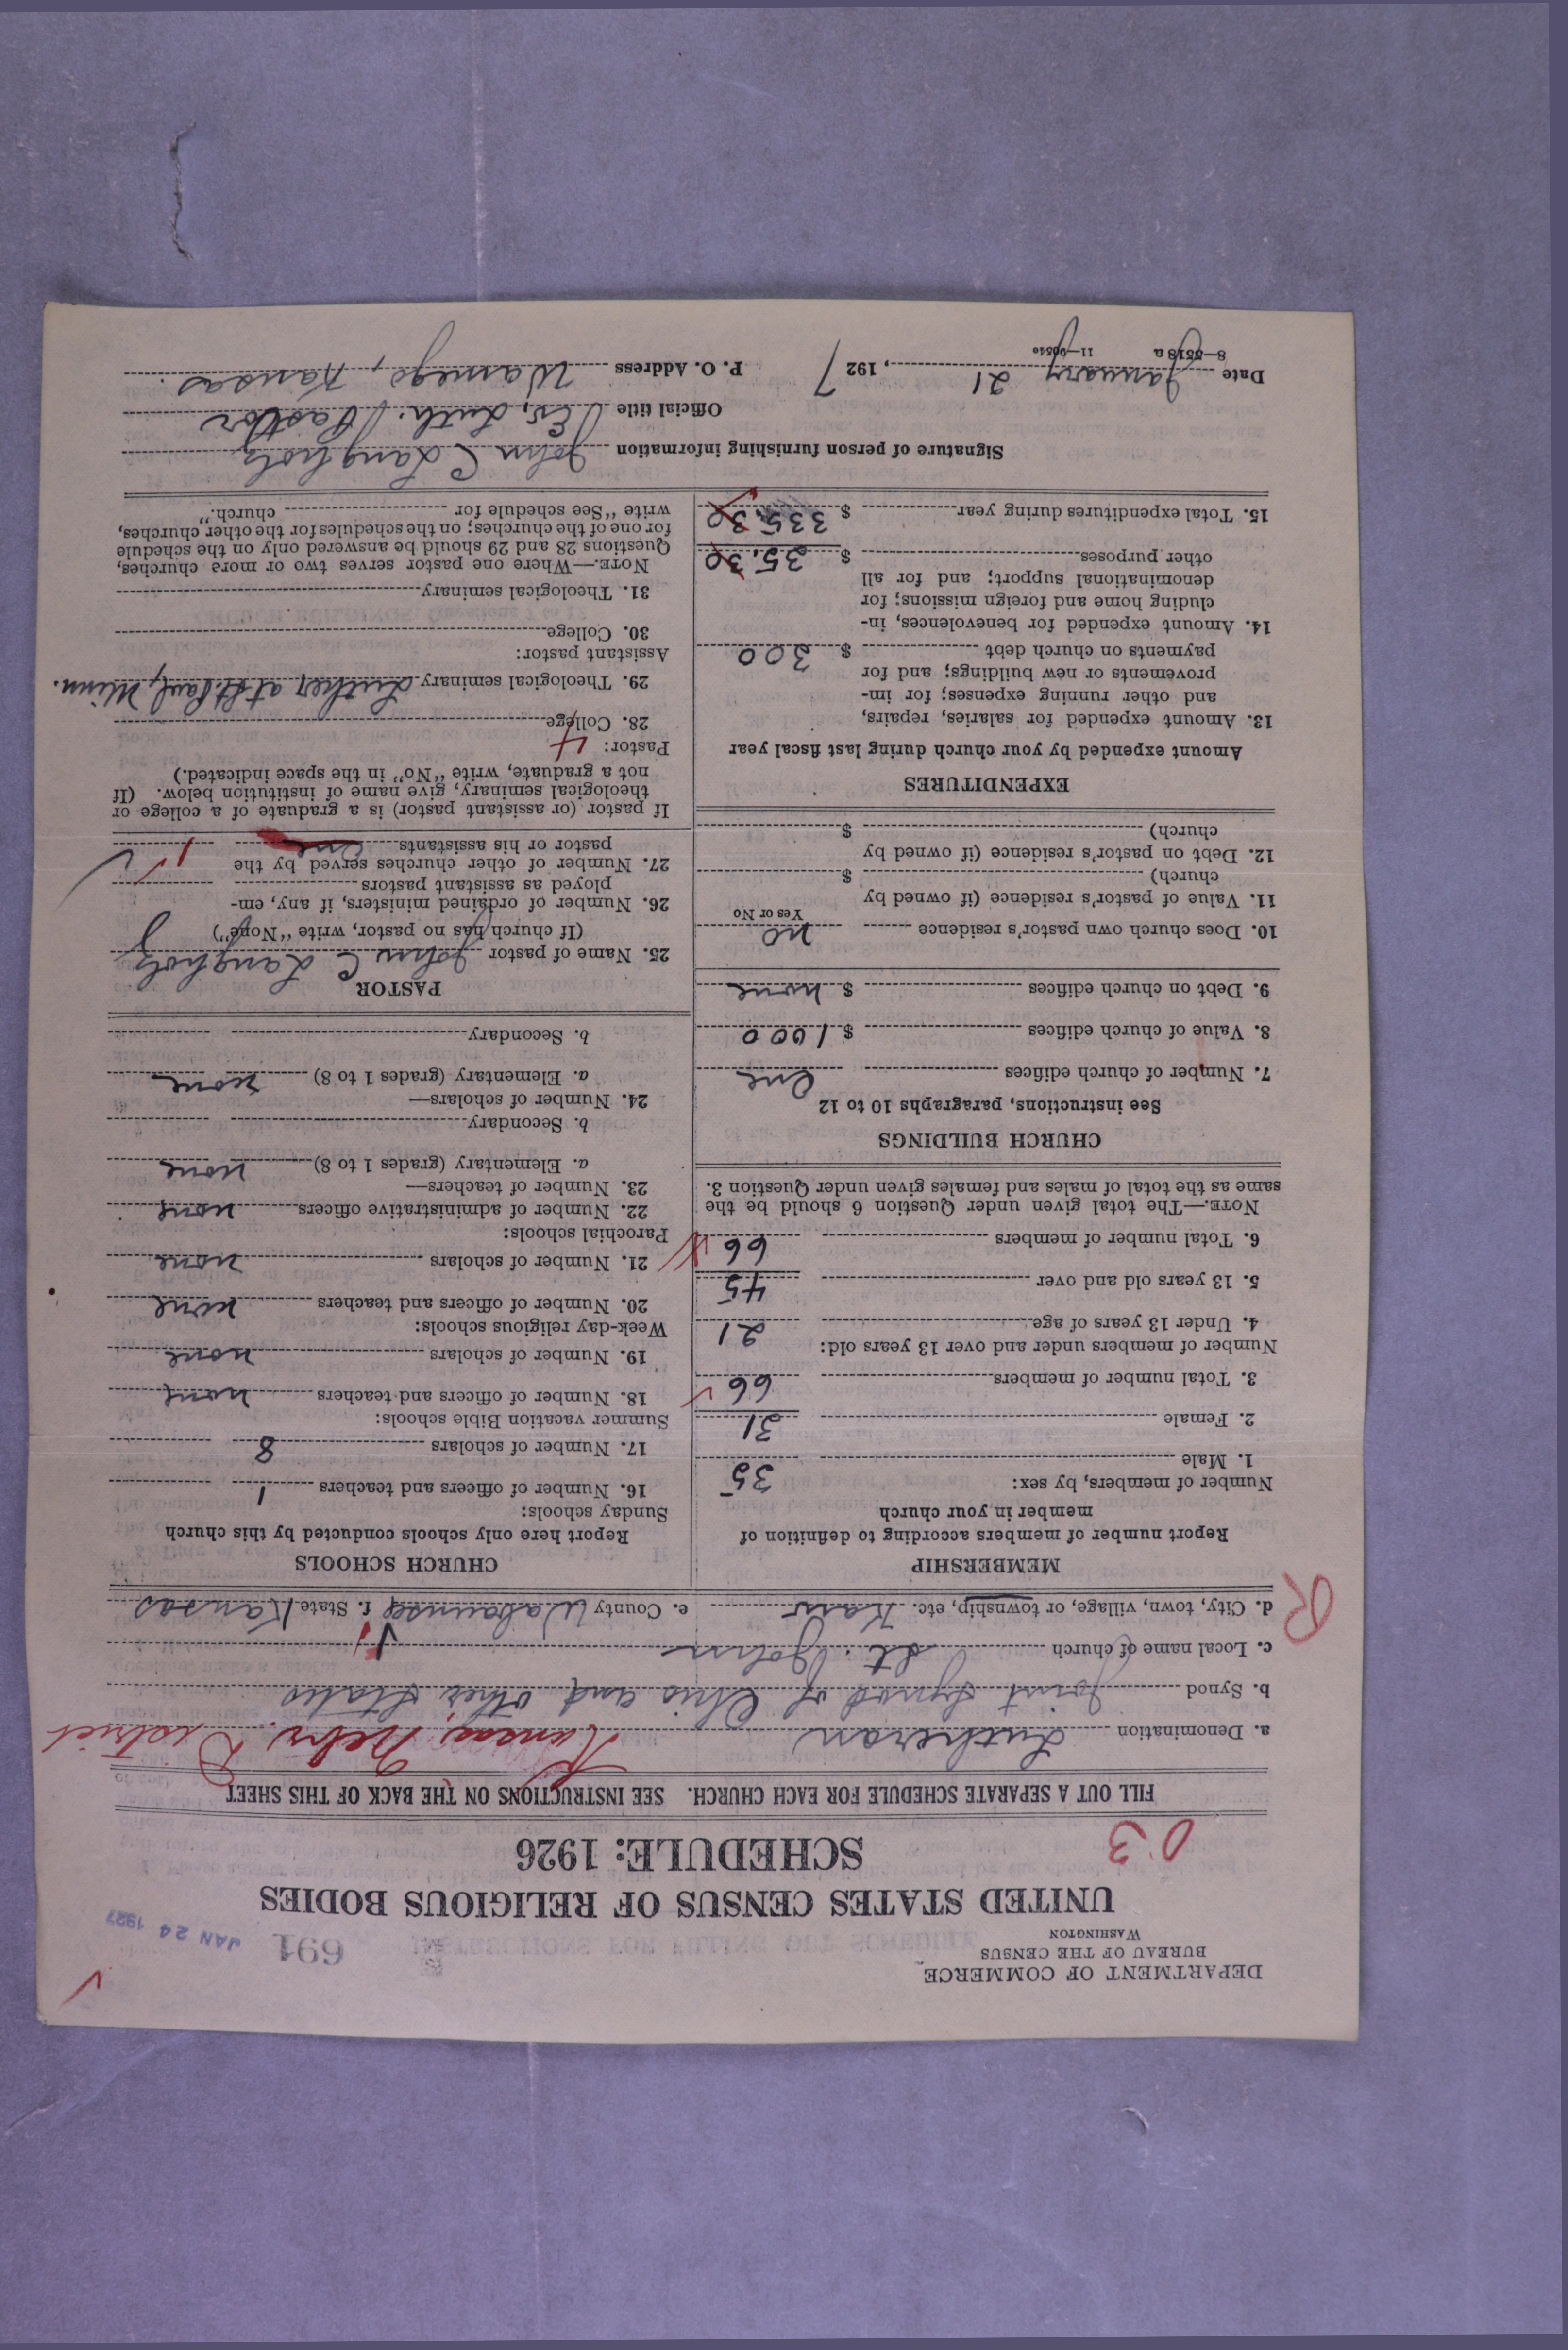 DEPARTMENT OF COMMERCE
BUREAU OF THE CENSUS
WASHINGTON
691
JAN 24 1927
UNITED STATES CENSUS OF RELIGIOUS BODIES
SCHEDULE: 1926
03
FILL OUT A SEPARATE SCHEDULE FOR EACH CHURCH. SEE INSTRUCTIONS ON THE BACK OF THIS SHEET
a. Denomination Lutheran Kansas, Nebr. District
b. Synod Joint Synod of Ohio and other States
c. Local name of church St. John
d. City, town, village, or township, etc. Kaw e. County Wabaunsee f. State Kansas
R
MEMBERSHIP
Report number of members according to definition of
member in your church
Number of members, by sex:
1. Male 35
2. Female 31
3. Total number of members 66
Number of members under and over 13 years old:
4. Under 13 years of age 21
5. 13 years old and over 45
6. Total number of members 66
NOTE.—The total given under Question 6 should be the
same as the total of males and females given under Question 3.
CHURCH BUILDINGS
See instructions, paragraphs 10 to 12
7. Number of church edifices One
8. Value of church edifices $ 1000
9. Debt on church edifices $ none
10. Does church own pastor's residence no
Yes or No
11. Value of pastor's residence (if owned by
church) $
12. Debt on pastor's residence (if owned by
church) $
EXPENDITURES
Amount expended by your church during last fiscal year
13. Amount expended for salaries, repairs,
and other running expenses; for im-
provements or new buildings; and for
payments on church debt $ 300
14. Amount expended for benevolences, in-
cluding home and foreign missions; for
denominational support; and for all
other purposes $ 35.30
15. Total expenditures during year $ 335.30
CHURCH SCHOOLS
Report here only schools conducted by this church
Sunday schools:
16. Number of officers and teachers 1
17. Number of scholars 8
Summer vacation Bible schools:
18. Number of officers and teachers none
19. Number of scholars none
Week-day religious schools:
20. Number of officers and teachers none
21. Number of scholars none
Parochial schools:
22. Number of administrative officers none
23. Number of teachers—
a. Elementary (grades 1 to 8) none
b. Secondary
24. Number of scholars—
a. Elementary (grades 1 to 8) none
b. Secondary
PASTOR
25. Name of pastor John C Langholz
(If church has no pastor, write "None")
26. Number of ordained ministers, if any, em-
ployed as assistant pastors
27. Number of other churches served by the
pastor or his assistants one 1
If pastor (or assistant pastor) is a graduate of a college or
theological seminary, give name of institution below. (If
not a graduate, write "No" in the space indicated.)
Pastor: 4
28. College
29. Theological seminary Luther at St. Paul, Minn.
Assistant pastor:
30. College
31. Theological seminary
NOTE.—Where one pastor serves two or more churches,
Questions 28 and 29 should be answered only on the schedule
for one of the churches; on the schedules for the other churches,
write "See schedule for church."
Signature of person furnishing information John C Langholz
Official title Ev. Luth. Pastor
Date January 21, 1927 P. O. Address Wamego, Kansas.
8—5518a